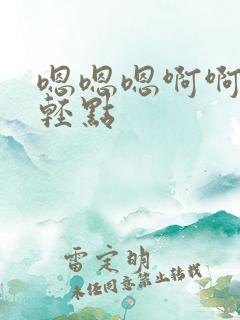 嗯嗯嗯啊啊
輕點
雷定明
未经同意禁止转载